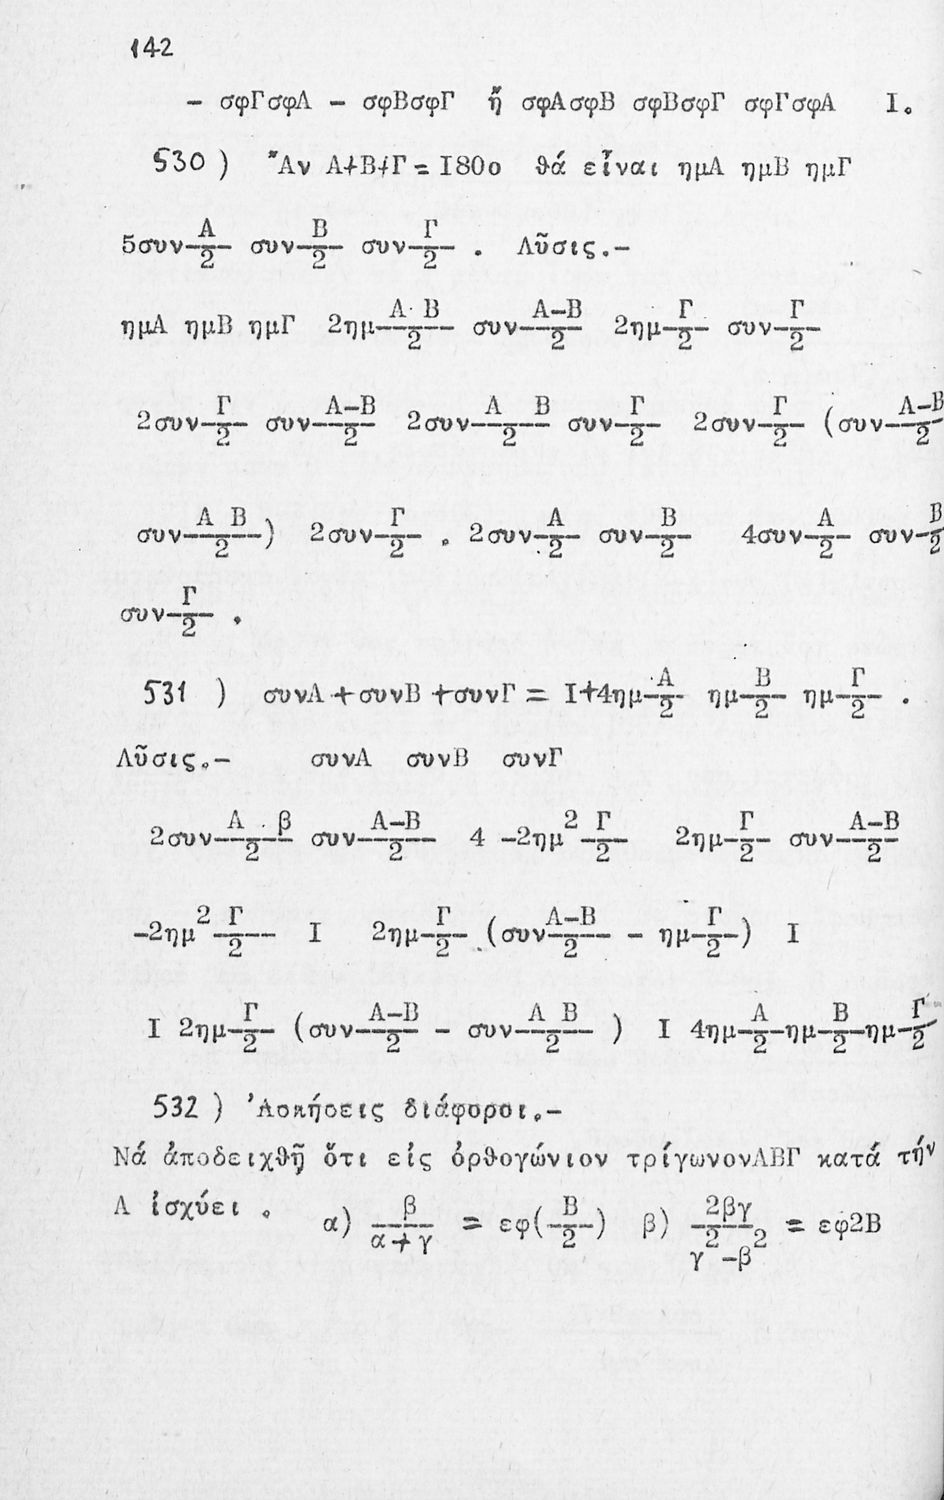 142
- σφΓσφΑ - σφΒσφΓ ἤ σφΑσφΒ σφΒσφΓ σφΓσφΑ Ι.
530 ) Ἄν Α+Β+Γ = Ι80ο θά εἶναι ημΑ ημΒ ημΓ
5συν Α/2 συν Β/2 συν Γ/2 . Λῦσις.-
ημΑ ημΒ ημΓ 2ημ Α Β/2 συν Α-Β/2 2ημ Γ/2 συν Γ/2
2συν Γ/2 συν Α-Β/2 2συν Α Β/2 συν Γ/2 2συν Γ/2 (συν Α-Β/2
συν Α Β/2 ) 2συν Γ/2 . 2συν Α/2 συν Β/2 4συν Α/2 συν Β/2
συν Γ/2 .
531 ) συνΑ +συνΒ +συνΓ = Ι+4ημ Α/2 ημ Β/2 ημ Γ/2 .
Λῦσις.- συνΑ συνΒ συνΓ
2συν Α β/2 συν Α-Β/2 4 -2ημ² Γ/2 2ημ Γ/2 συν Α-Β/2
-2ημ² Γ/2 Ι 2ημ Γ/2 (συν Α-Β/2 - ημ Γ/2 ) Ι
Ι 2ημ Γ/2 (συν Α-Β/2 - συν Α Β/2 ) Ι 4ημ Α/2 ημ Β/2 ημ Γ/2
532 ) Ἀσκήσεις διάφοροι.-
Νά ἀποδειχθῇ ὅτι εἰς ὀρθογώνιον τρίγωνονΑΒΓ κατά τήν
Α ἰσχύει . α) β/α+γ = εφ( Β/2 ) β) 2βγ/γ²-β² = εφ2Β